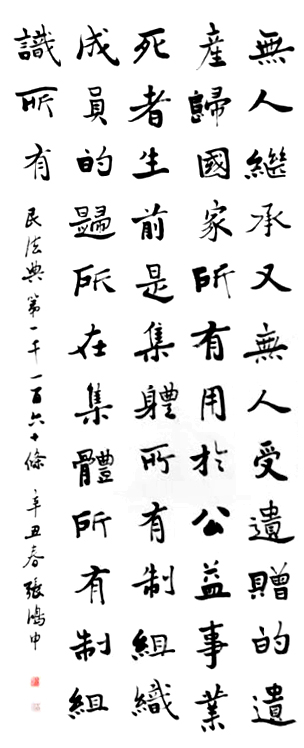 無人繼承又無人受遺贈的遺
産歸國家所有用於公益事業
死者生前是集軆所有制組織
成員的歸所在集體所有制組
識所有
民法典第一千一百六十條 辛丑春張鴻